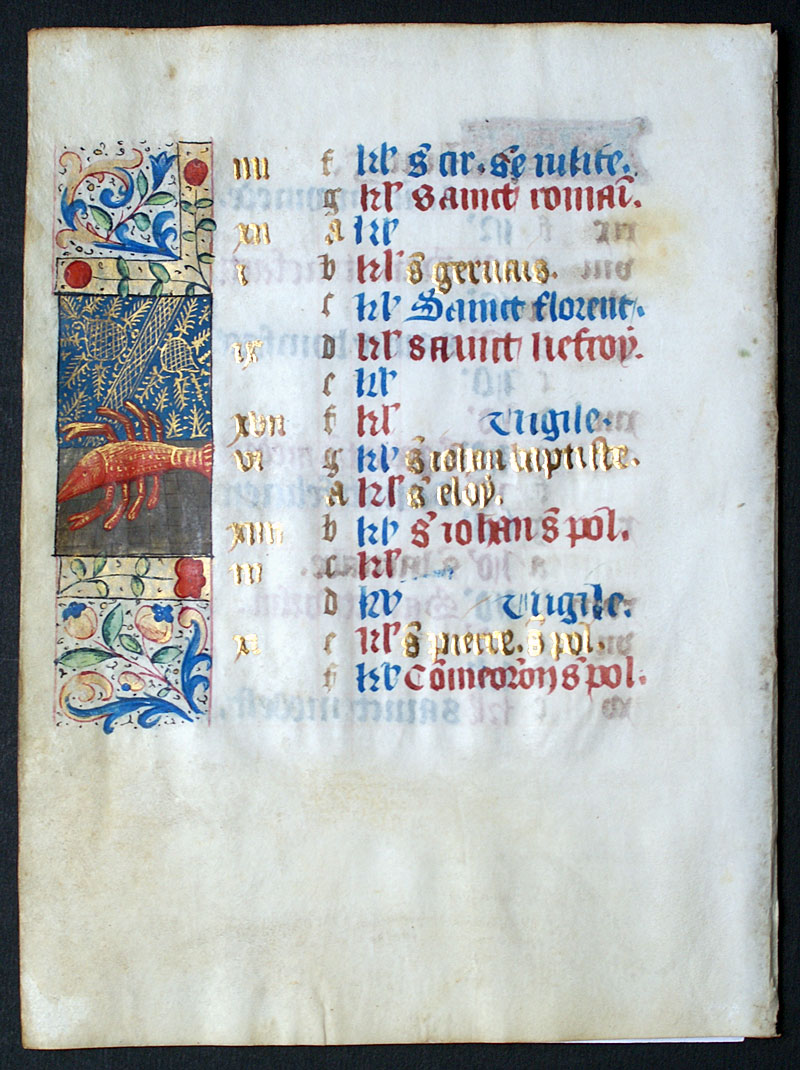 iiii f kl' S cir. Se iulite.
g kl' Sainct romai.
xii A kl'
i b kl' S geruais.
c kl' Sainct florent.
ix d kl' Sainct liefroy.
e kl'
xvii f kl' Uigile.
vi g kl' S iohan baptiste.
A kl' S eloy.
xiiii b kl' S iohan S pol.
iii c kl'
d kl' Uigile.
xi e kl' S pierre. S pol.
f kl' Comeoron S pol.